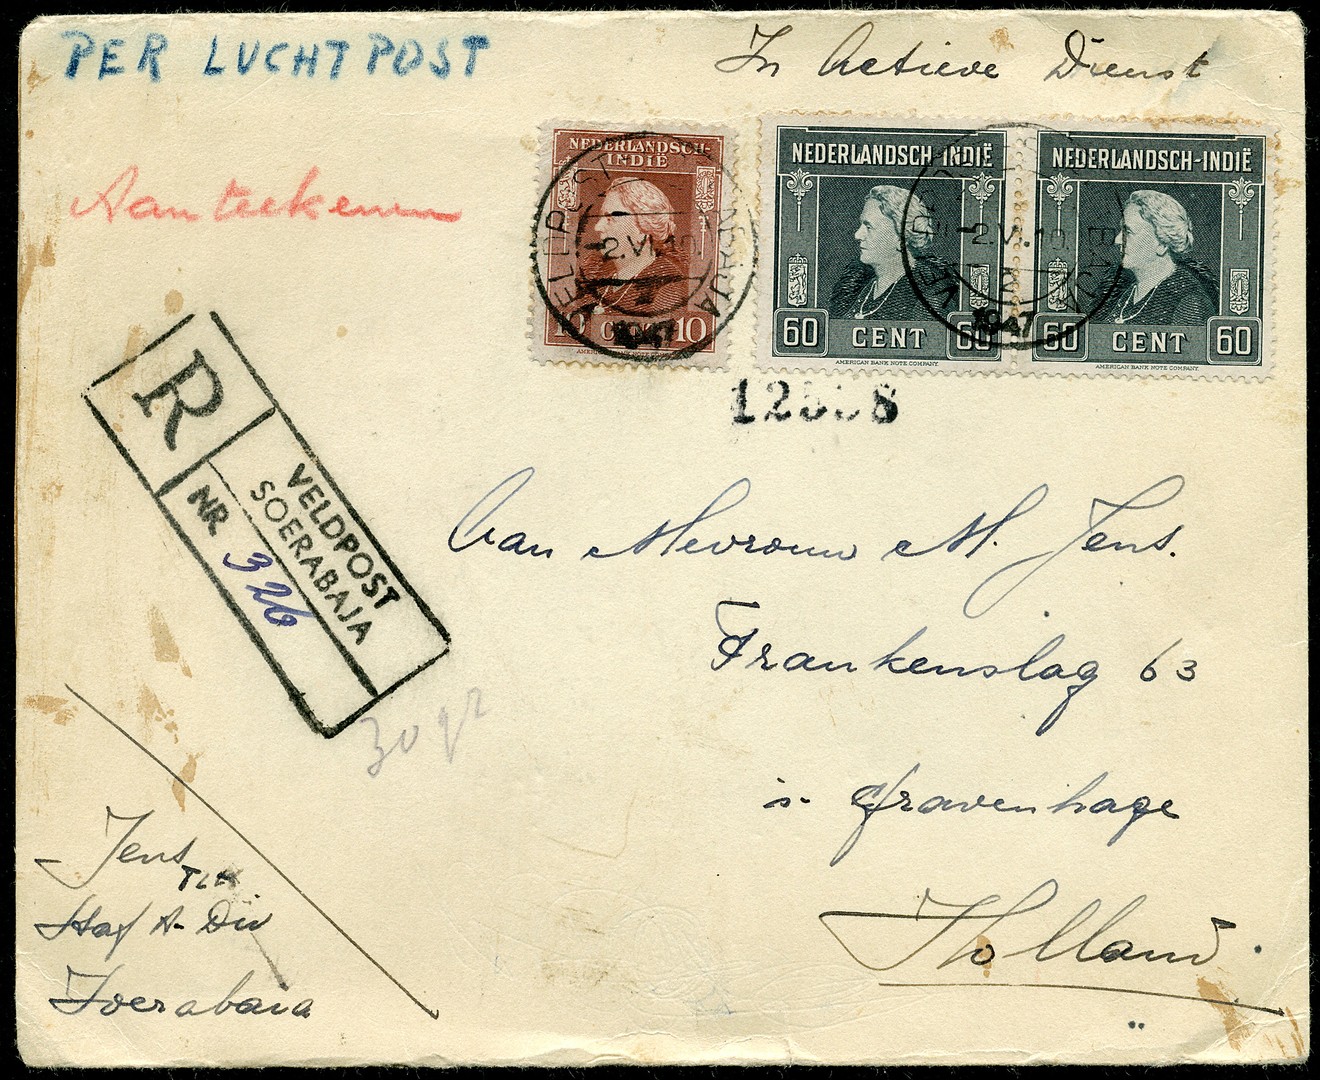 PER LUCHTPOST
In Actieve Dienst
Aantekenen
NEDERLANDSCH-
INDIË
10 CENT 10
NEDERLANDSCH-INDIË
60 CENT 60
AMERICAN BANK NOTE COMPANY
NEDERLANDSCH-INDIË
60 CENT 60
AMERICAN BANK NOTE COMPANY
VELDPOST SOERABAJA
2.VI.10
1947
VELDPOST SOERABAJA
2.VI.10
1947
R
VELDPOST
SOERABAJA
NR 326
30 gr
Aan Mevrouw M. Jens.
Frankenslag 63
s- Gravenhage
Holland.
Jens
Staf A-Div
Soerabaia